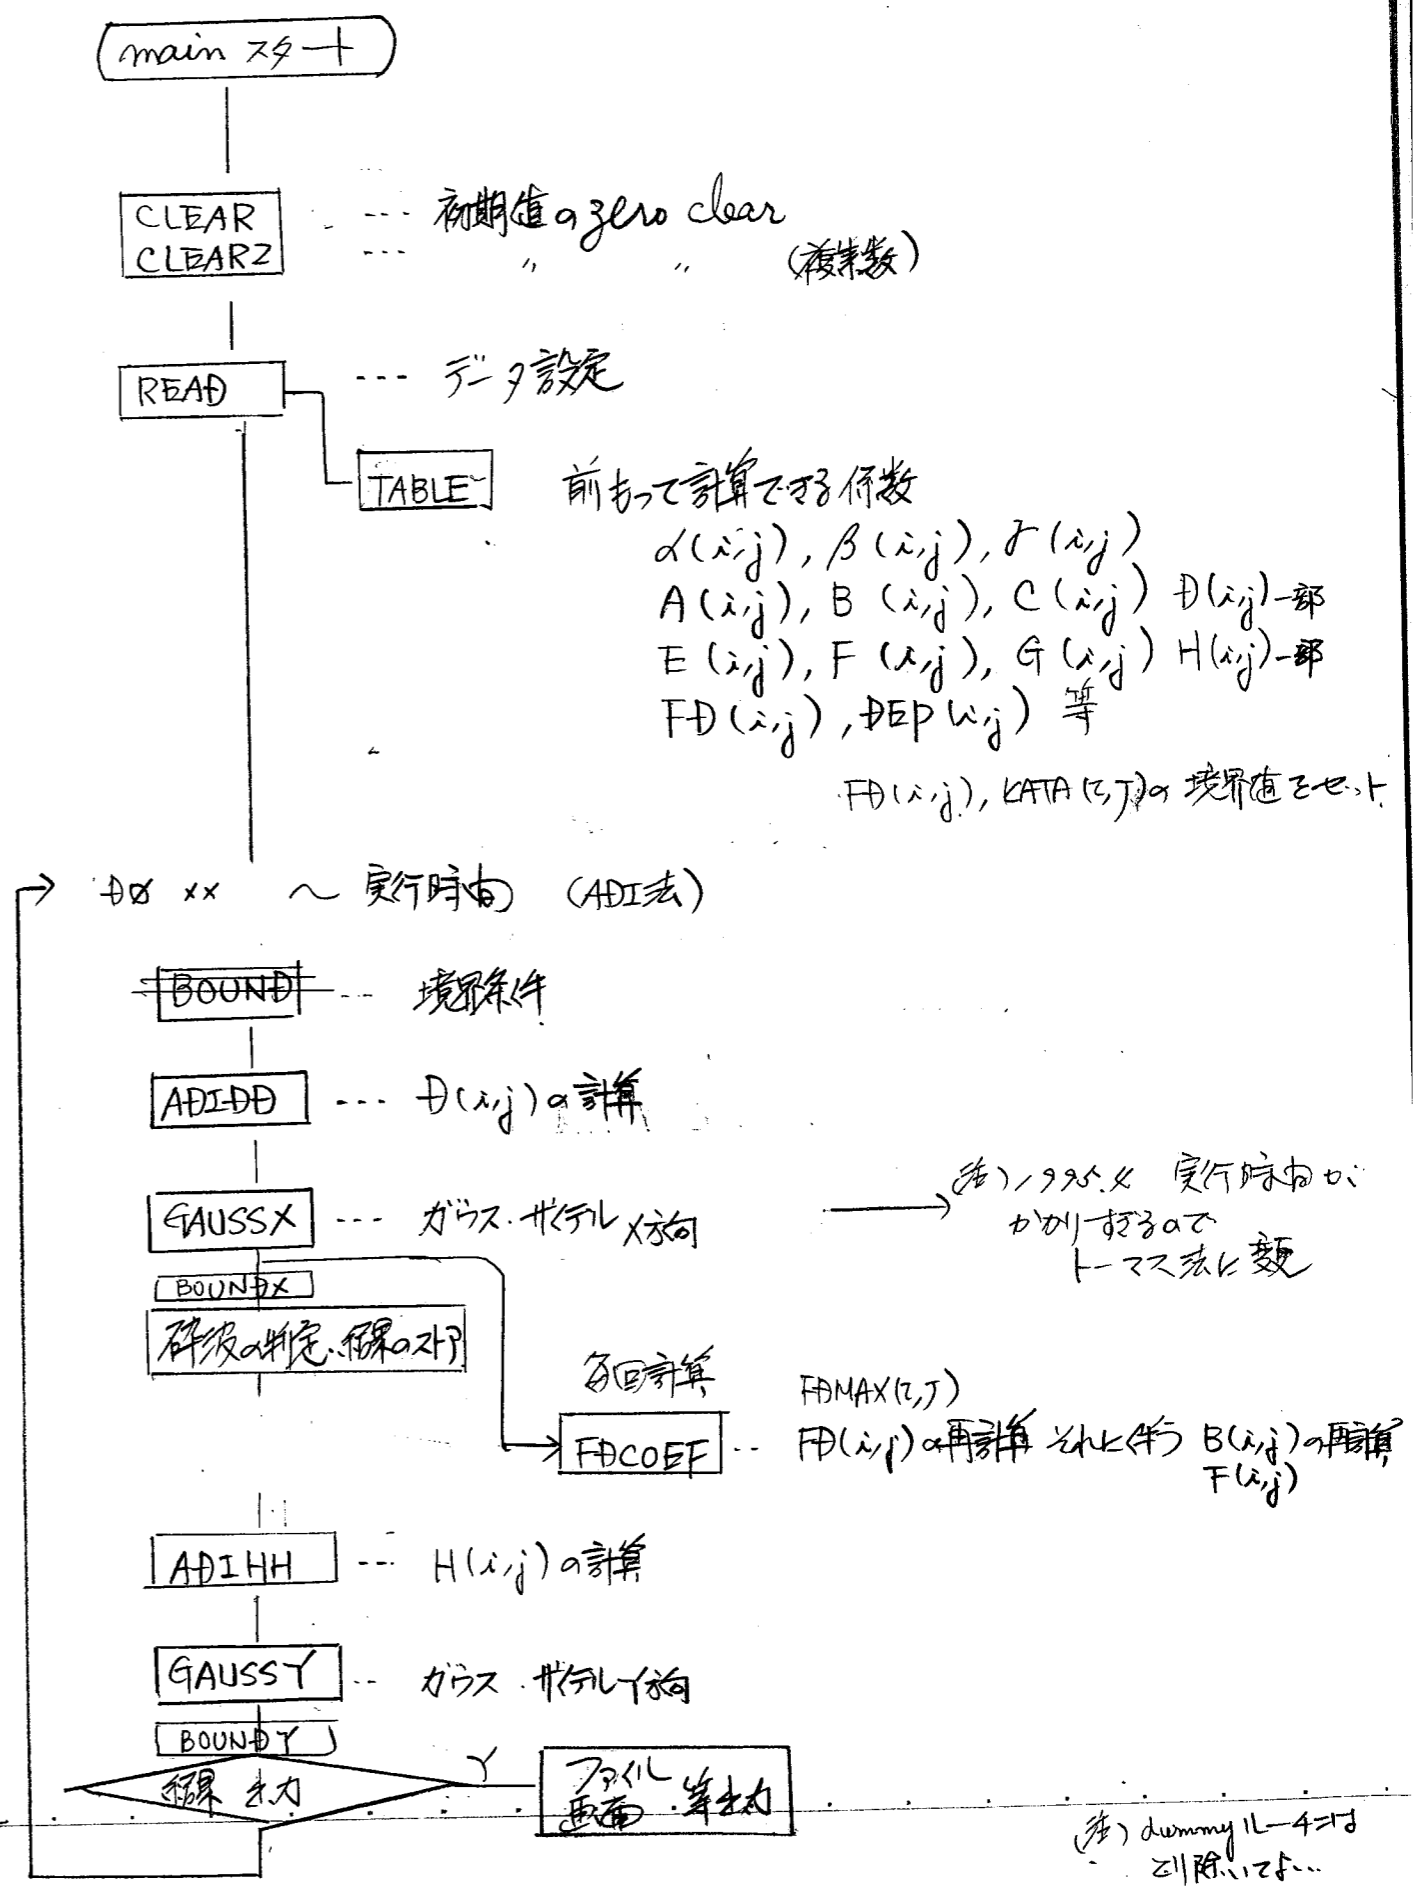 main スタート
CLEAR --- 初期値の zero clear
CLEARZ --- 〃 〃 (複素数)
READ --- データ設定
TABLE 前もって計算できる係数
α(i,j), β(i,j), γ(i,j)
A(i,j), B(i,j), C(i,j) D(i,j)一部
E(i,j), F(i,j), G(i,j) H(i,j)一部
FD(i,j), DEP(i,j) 等
FD(i,j), KATA(I,J)の境界値をセット
DO ×× ～ 実行時間 (ADI法)
BOUND --- 境界条件
ADIDD --- D(i,j)の計算
GAUSSX --- ガウス・ザイデル X方向
(注) 1995.4 実行時間が
かかりすぎるので
トーマス法に変更
BOUNDX
砕波の判定、結果のストア
毎回計算
FDMAX(I,J)
FDCOEF -- FD(i,j)の再計算 それに伴う B(i,j)の再計算
F(i,j)
ADIHH --- H(i,j)の計算
GAUSSY -- ガウス・ザイデル Y方向
BOUNDY
結果 出力
Y
ファイル
画面 等出力
(注) dummyルーチンは
とり除いてよい...